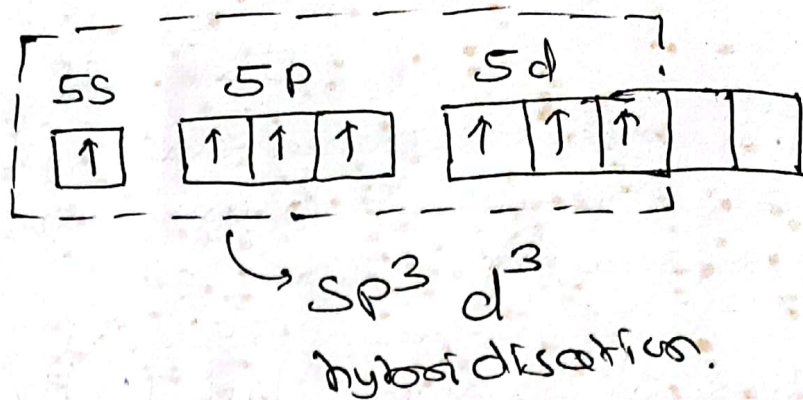 5s 5p 5d
↑ ↑ ↑ ↑ ↑ ↑ ↑
sp³ d³
hybridisation.